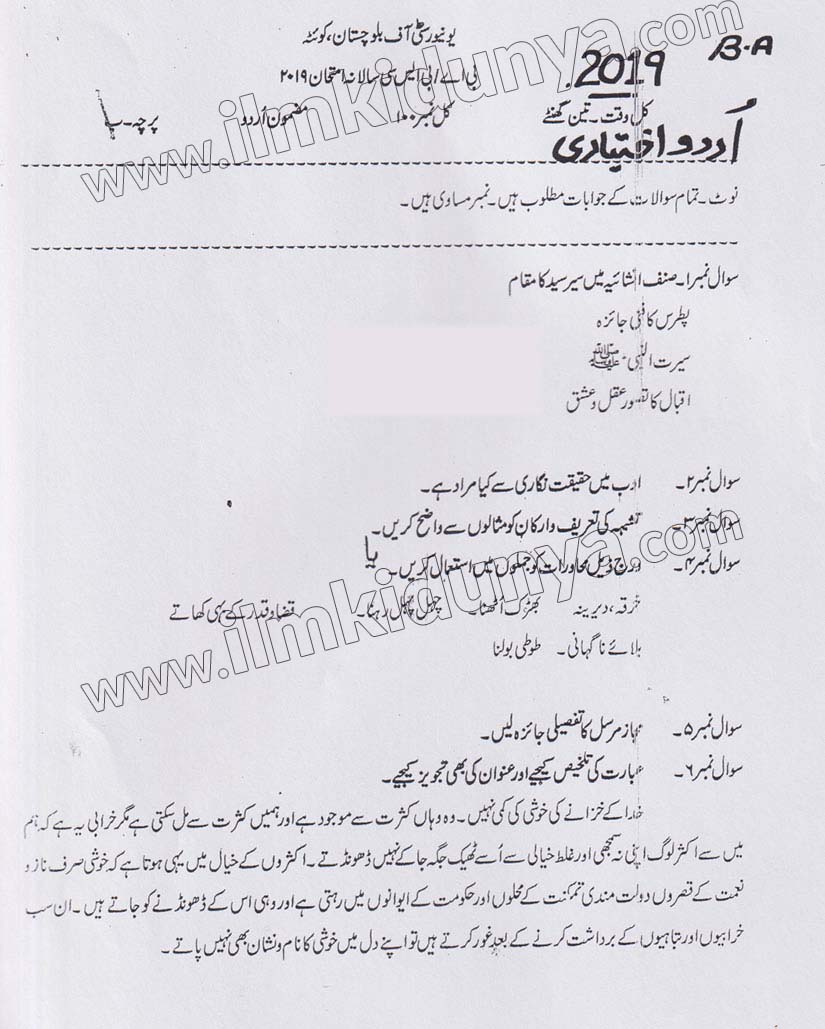 یونیورسٹی آف بلوچستان، کوئٹہ
B-A
2019
بی اے/بی ایس سی سالانہ امتحان ۲۰۱۹
کل وقت۔ تین گھنٹے
کل نمبر ۱۰۰
مضمون اُردو
پرچہ۔ ب
اُردو اختیاری
نوٹ۔ تمام سوالات کے جوابات مطلوب ہیں۔ نمبر مساوی ہیں۔
سوال نمبر۱۔ صنف انشائیہ میں سرسید کا مقام
پطرس کا فنی جائزہ
سیرت النبی ﷺ
اقبال کا تصور عقل و عشق
سوال نمبر۲۔ ادب میں حقیقت نگاری سے کیا مراد ہے۔
سوال نمبر۳۔ تشبہہ کی تعریف و ارکان کو مثالوں سے واضح کریں۔
یا
سوال نمبر۴۔ درج ذیل محاورات کو جملوں میں استعمال کریں۔
خرقہ، دیرینہ بھڑک اُٹھنا۔ چہل پہل رہنا۔ قضا و قدر کے بہی کھاتے
بلائے ناگہانی۔ طوطی بولنا
سوال نمبر۵۔ مجاز مرسل کا تفصیلی جائزہ لیں۔
سوال نمبر۶۔ عبارت کی تلخیص کیجیے اور عنوان کی بھی تجویز کیجیے۔
خدا کے خزانے کی خوشی کی کمی نہیں۔ وہ وہاں کثرت سے موجود ہے اور ہمیں کثرت سے مل سکتی ہے مگر خرابی یہ ہے کہ ہم
میں سے اکثر لوگ اپنی نہ سمجھی اور غلط خیالی سے اُسے ٹھیک جگہ جا کے نہیں ڈھونڈتے۔ اکثروں کے خیال میں یہی ہوتا ہے کہ خوشی صرف ناز و
نعمت کے قصروں دولت مندی تمکنت کے محلوں اور حکومت کے ایوانوں میں رہتی ہے اور وہی اس کے ڈھونڈنے کو جاتے ہیں۔ ان سب
خرابیوں اور تباہیوں کے برداشت کرنے کے بعد غور کرتے ہیں تو اپنے دل میں خوشی کا نام و نشان بھی نہیں پاتے۔
www.ilmkidunya.com
www.ilmkidunya.com